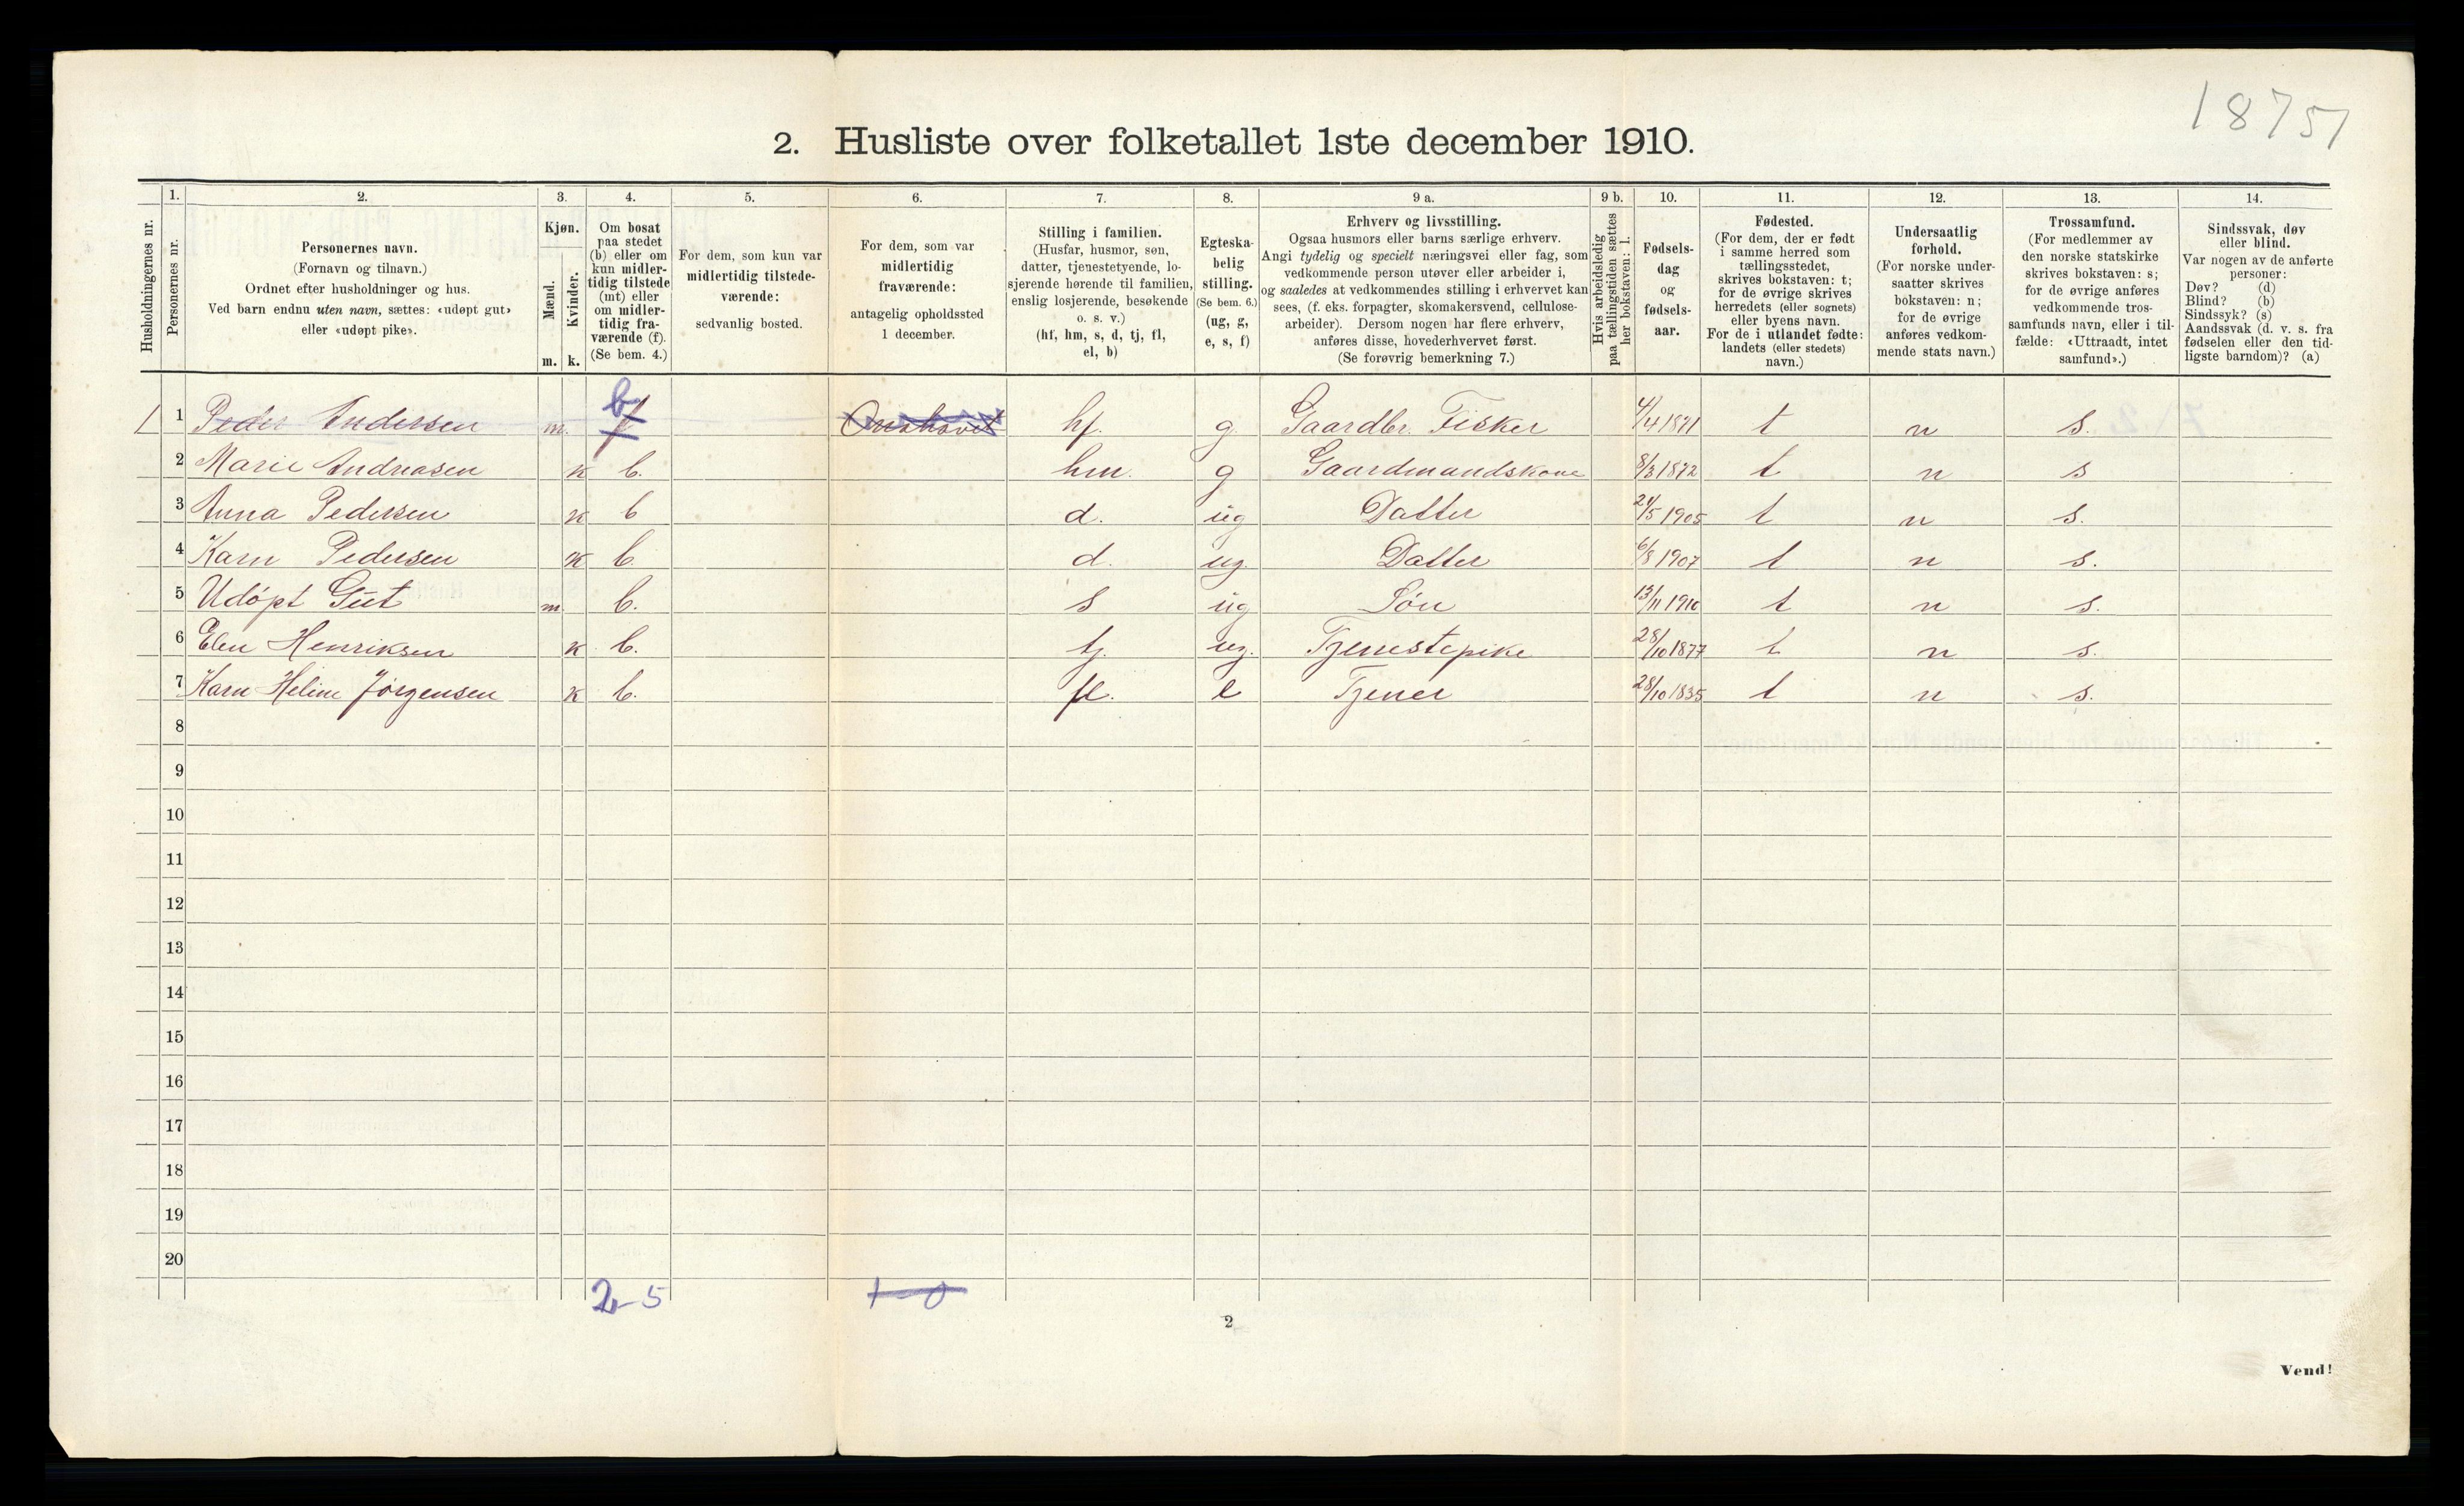 18751
2. Husliste over folketallet 1ste december 1910.
Husholdningernes nr.
1.
Personernes nr.
2.
Personernes navn.
(Fornavn og tilnavn.)
Ordnet efter husholdninger og hus.
Ved barn endnu uten navn, sættes: «udøpt gut»
eller «udøpt pike».
3.
Kjøn.
Mænd.
Kvinder.
m. k.
4.
Om bosat
paa stedet
(b) eller om
kun midler-
tidig tilstede
(mt) eller
om midler-
tidig fra-
værende (f).
(Se bem. 4.)
5.
For dem, som kun var
midlertidig tilstede-
værende:
sedvanlig bosted.
6.
For dem, som var
midlertidig
fraværende:
antagelig opholdssted
1 december.
7.
Stilling i familien.
(Husfar, husmor, søn,
datter, tjenestetyende, lo-
sjerende hørende til familien,
enslig losjerende, besøkende
o. s. v.)
(hf, hm, s, d, tj, fl,
el, b)
8.
Egteska-
belig
stilling.
(Se bem. 6.)
(ug, g,
e, s, f)
9 a.
Erhverv og livsstilling.
Ogsaa husmors eller barns særlige erhverv.
Angi tydelig og specielt næringsvei eller fag, som
vedkommende person utøver eller arbeider i,
og saaledes at vedkommendes stilling i erhvervet kan
sees, (f. eks. forpagter, skomakersvend, cellulose-
arbeider). Dersom nogen har flere erhverv,
anføres disse, hovederhvervet først.
(Se forøvrig bemerkning 7.)
9 b.
Hvis arbeidsledig
paa tællingstiden sættes
her bokstaven: l.
10.
Fødsels-
dag
og
fødsels-
aar.
11.
Fødested.
(For dem, der er født
i samme herred som
tællingsstedet,
skrives bokstaven: t;
for de øvrige skrives
herredets (eller sognets)
eller byens navn.
For de i utlandet fødte:
landets (eller stedets)
navn.)
12.
Undersaatlig
forhold.
(For norske under-
saatter skrives
bokstaven: n;
for de øvrige
anføres vedkom-
mende stats navn.)
13.
Trossamfund.
(For medlemmer av
den norske statskirke
skrives bokstaven: s;
for de øvrige anføres
vedkommende tros-
samfunds navn, eller i til-
fælde: «Uttraadt, intet
samfund».)
14.
Sindssvak, døv
eller blind.
Var nogen av de anførte
personer:
Døv? (d)
Blind? (b)
Sindssyk? (s)
Aandssvak (d. v. s. fra
fødselen eller den tid-
ligste barndom)? (a)
1 1 Peder Andersen m. b f hf. g Gaardbr. Fisker 4/4 1871 t n s.
2 Marie Andreasen k b. hm. g Gaardmandskone 8/3 1872 t n s
3 Anna Pedersen k b d. ug Datter 24/5 1905 t n s.
4 Karn Pedersen k b. d. ug. Datter 6/8 1907 t n s.
5 Udøpt Gut m b. s ug Søn 13/11 1910 t n s.
6 Elen Henriksen k b. tj. ug. Tjenestepike 28/10 1877 t n s.
7 Karn Heline Jørgensen k b. fl. e Tjener 28/10 1835 t n s.
8
9
10
11
12
13
14
15
16
17
18
19
20
2-5 1-0
2
Vend!